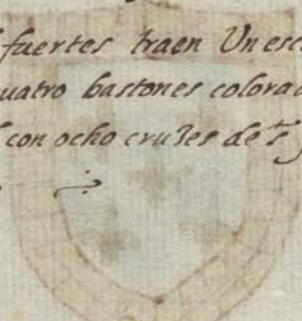 fuertes traen Un esc
uatro bastones colorad
con ocho cruzes de